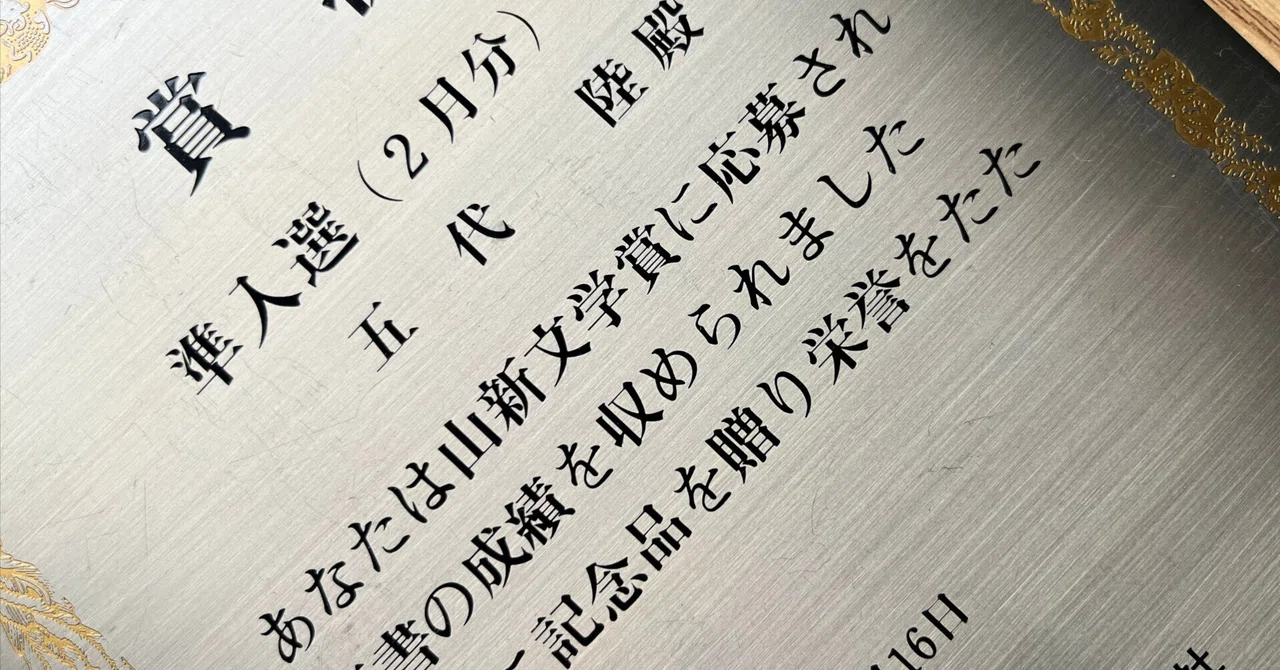 賞
準入選（2月分）
五代 陸殿
あなたは山新文学賞に応募され
書の成績を収められました
記念品を贈り栄誉をたた
16日